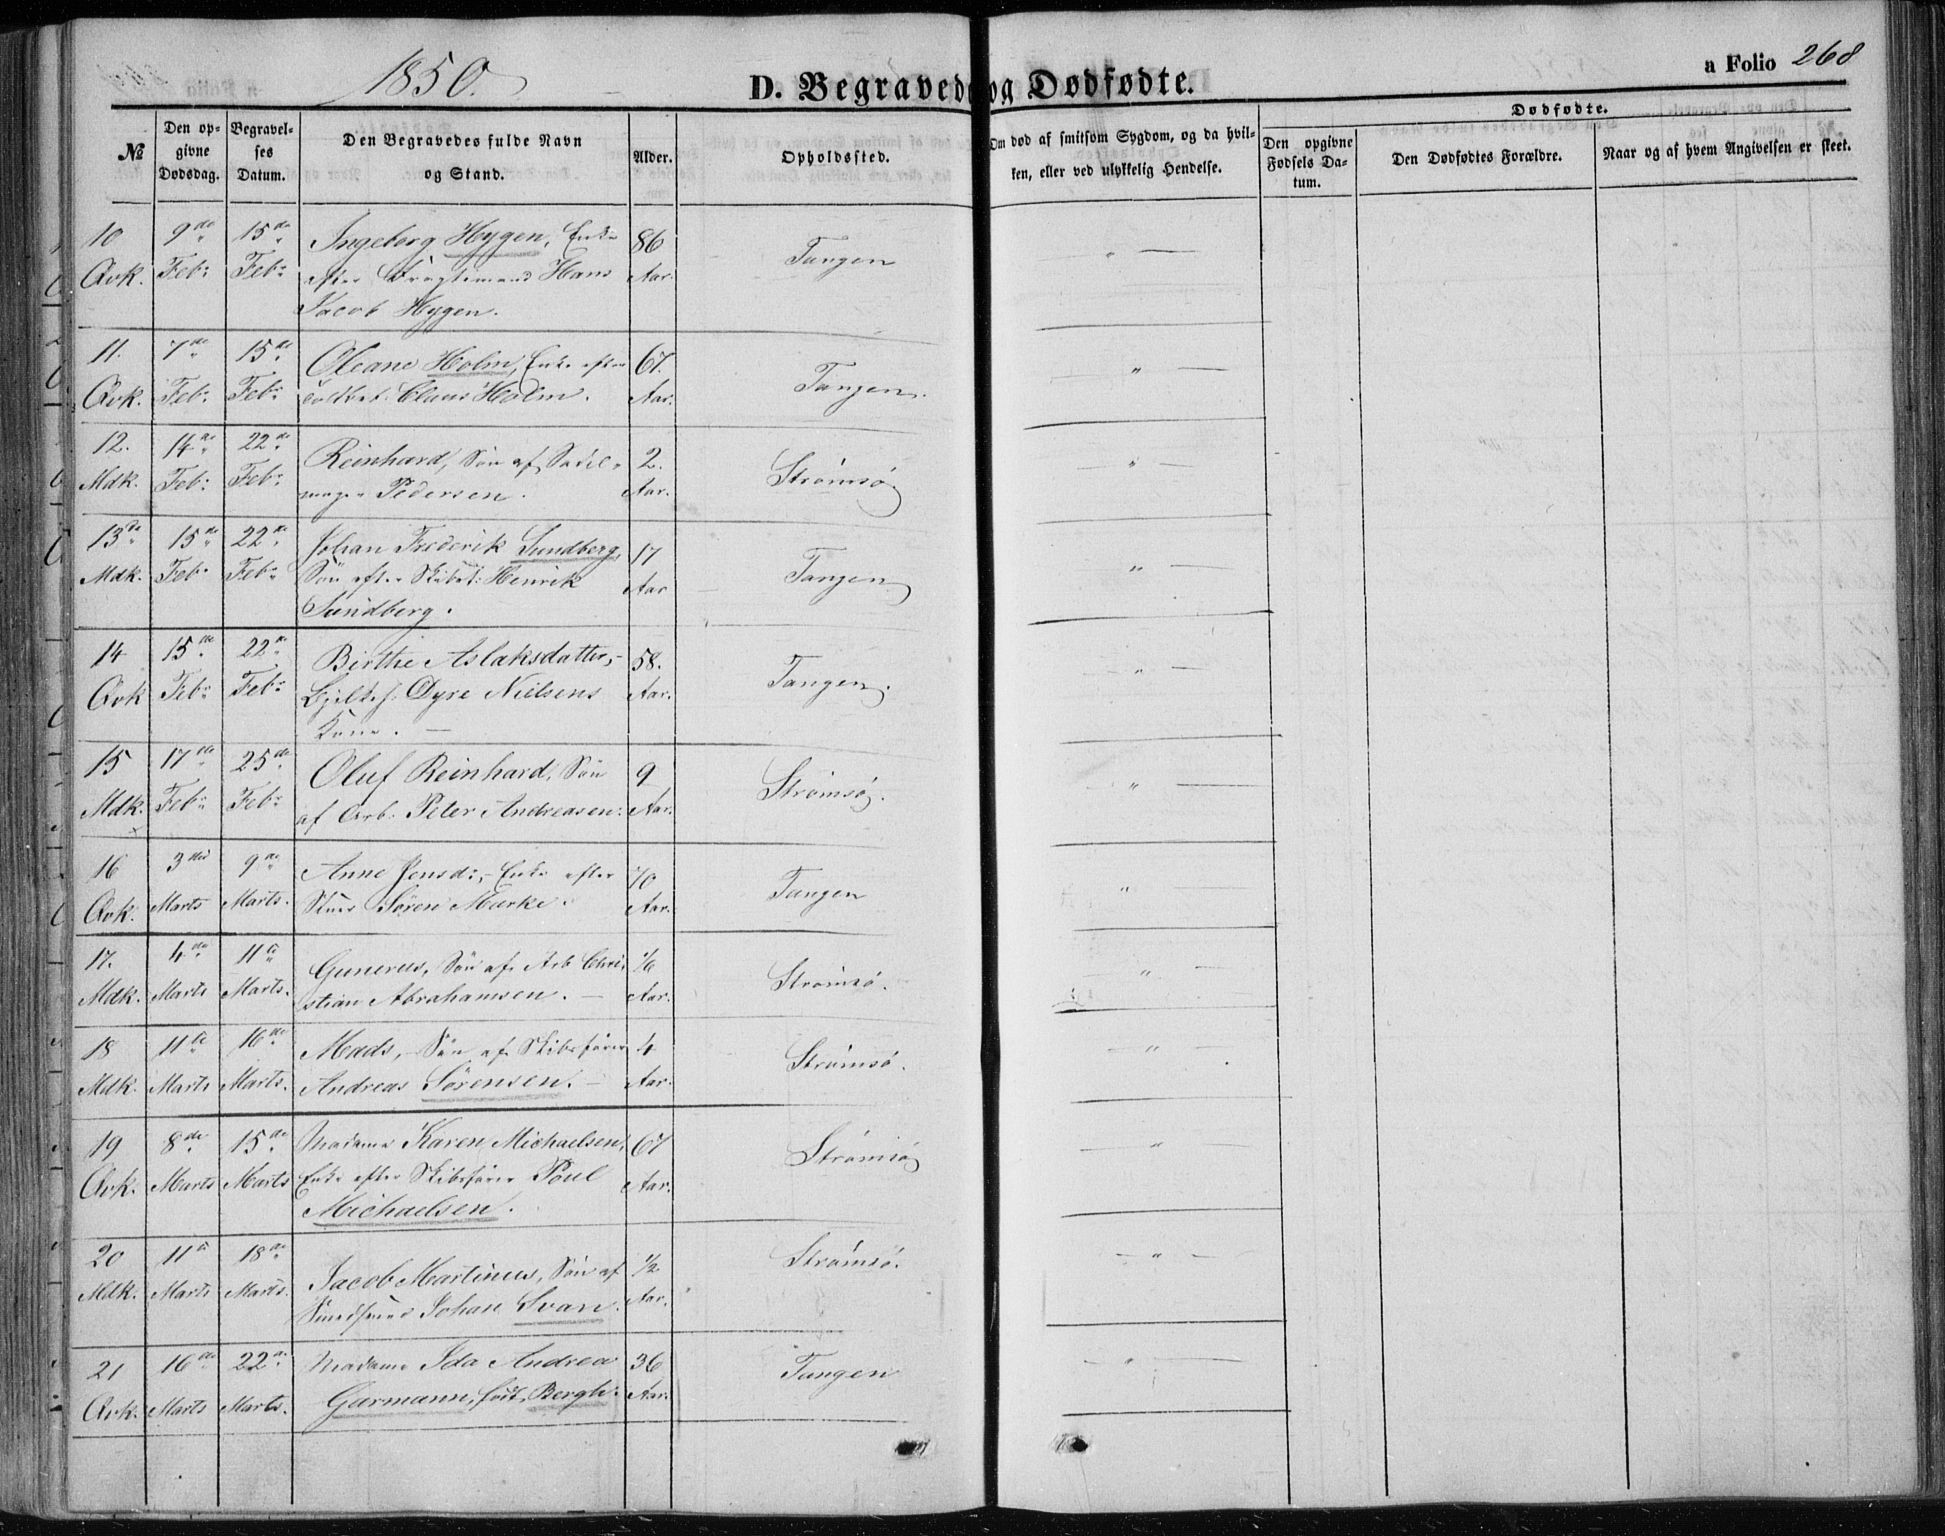 1850.
D. Begravede og Dødfødte.
a Folio 268
№
Den opgivne Dødsdag.
Begravelses Datum.
Den Begravedes fulde Navn og Stand.
Alder.
Opholdssted.
Om død af smitsom Sygdom, og da hvilken, eller ved ulykkelig Hendelse.
Dødfødte.
Den opgivne Fødsels Datum.
Den Dødfødtes Forældre.
Naar og af hvem Angivelsen er skeet.
10 9de 15de Ingeborg Hygen, Enke 86 Tangen " —
Qvk. Feb: Feb: efter Hans Aar.
Jacob Hygen.
11. 7de 15de Oleane Holm, Enke efter 67. Tangen. " —
Qvk. Feb: Feb: Claus Holm. Aar.
12. 14de 22de Reinhard, Søn af Sadel- 2. Strømsø — " —
Mdk. Feb: Feb: mager Pedersen. Aar.
13de 15de 22de Johan Frederik Sundberg, 17 Tangen " —
Mdk. Feb: Feb: Søn efter Skibst: Henrik Aar
Sundberg.
14 15de 22de Birthe Aslaksdatter, 58. Tangen. — " —
Qvk Feb: Feb: Dyre Nielsens Aar.
Kone. —
15 17de 25de Oluf Reinhard, Søn 9 Strømsø. " —
Mdk. Feb: Feb: af Arb: Peter Andreasen. Aar.
16 3die 9de Anne Jensd:, Enke efter 70 Tangen " —
Qvk. Marts Marts. Søren Marke. Aar.
17. 4de 11te Gunerus, Søn af Arb Chri- 1/6 Strømsø. " —
Mdk. Marts Marts. stian Abrahamsen. — Aar.
18 11te 16de Mads, Søn af Skibsfører 4 Strømsø. — " —
Mdk. Marts Marts. Andreas Sørensen. — Aar.
19 8de 15de Madame Karen Michaelsen, 67 Strømsø "
Qvk. Marts Marts Enke efter Skibsfører Poul Aar.
Michaelsen.
20 11te 18de Jacob Martinus, Søn af 1/2 Strømsø. — " —
Mdk. Marts Marts. Johan Svan. Aar.
21 16de 22de Madame Ida Andrea 36 Tangen — " —
Qvk. Marts Marts. Garmann, født Bergh. Aar.